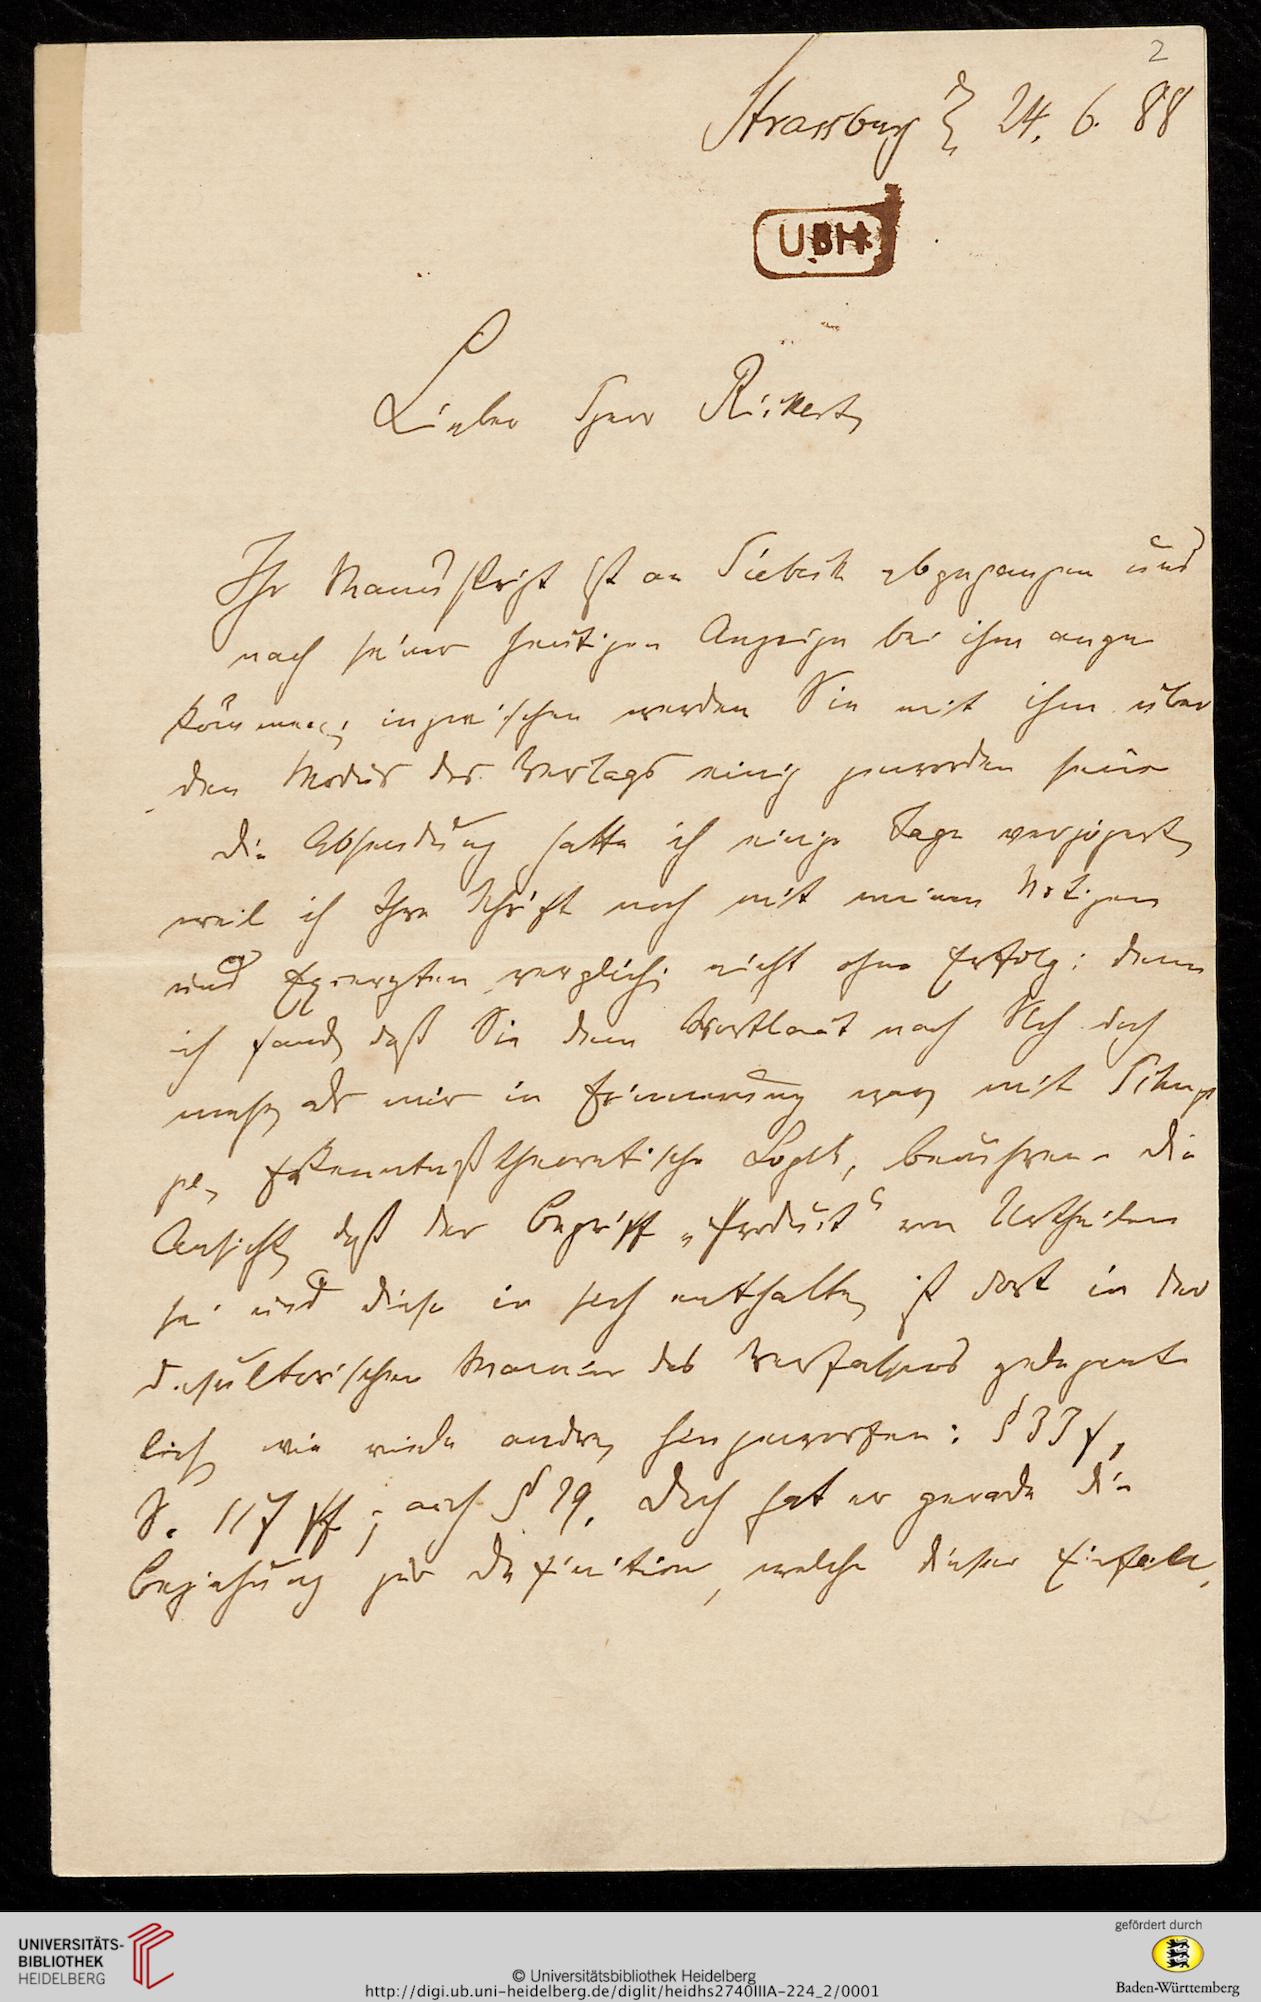 2
Strassburg 24. 6. 88
UBH
Lieber Herr Rickert,
Ihr Manuskript ist an Siebeck abgegangen und
nach seiner heutigen Anzeige bei ihm ange-
kommen; inzwischen werden Sie mit ihm über
den Modus des Verlags einig geworden sein.
Die Absendung hatte ich einige Tage verzögert,
weil ich Ihre Schrift noch mit meinen Notizen
und Excerpten verglich; nicht ohne Erfolg: denn
ich fand, daß Sie dem Wortlaut nach sich doch
mehr, als mir in Erinnerung war, mit Schup-
pe, Erkenntnißtheoretische Logik, berühren. Die
Ansicht, daß der Begriff „Product“ von Urtheilen
sei und diese in sich enthalte, ist dort in der
desultorischen Manier des Verfassers gelegent-
lich, wie viele andre, hingeworfen: § 33 f,
S. 117 ff; auch § 29. Doch hat er gerade die
Beziehung zur Definition, welche dieser Einfall,
UNIVERSITÄTS-
BIBLIOTHEK
HEIDELBERG
© Universitätsbibliothek Heidelberg
http://digi.ub.uni-heidelberg.de/diglit/heidhs2740IIIA-224_2/0001
gefördert durch
Baden-Württemberg